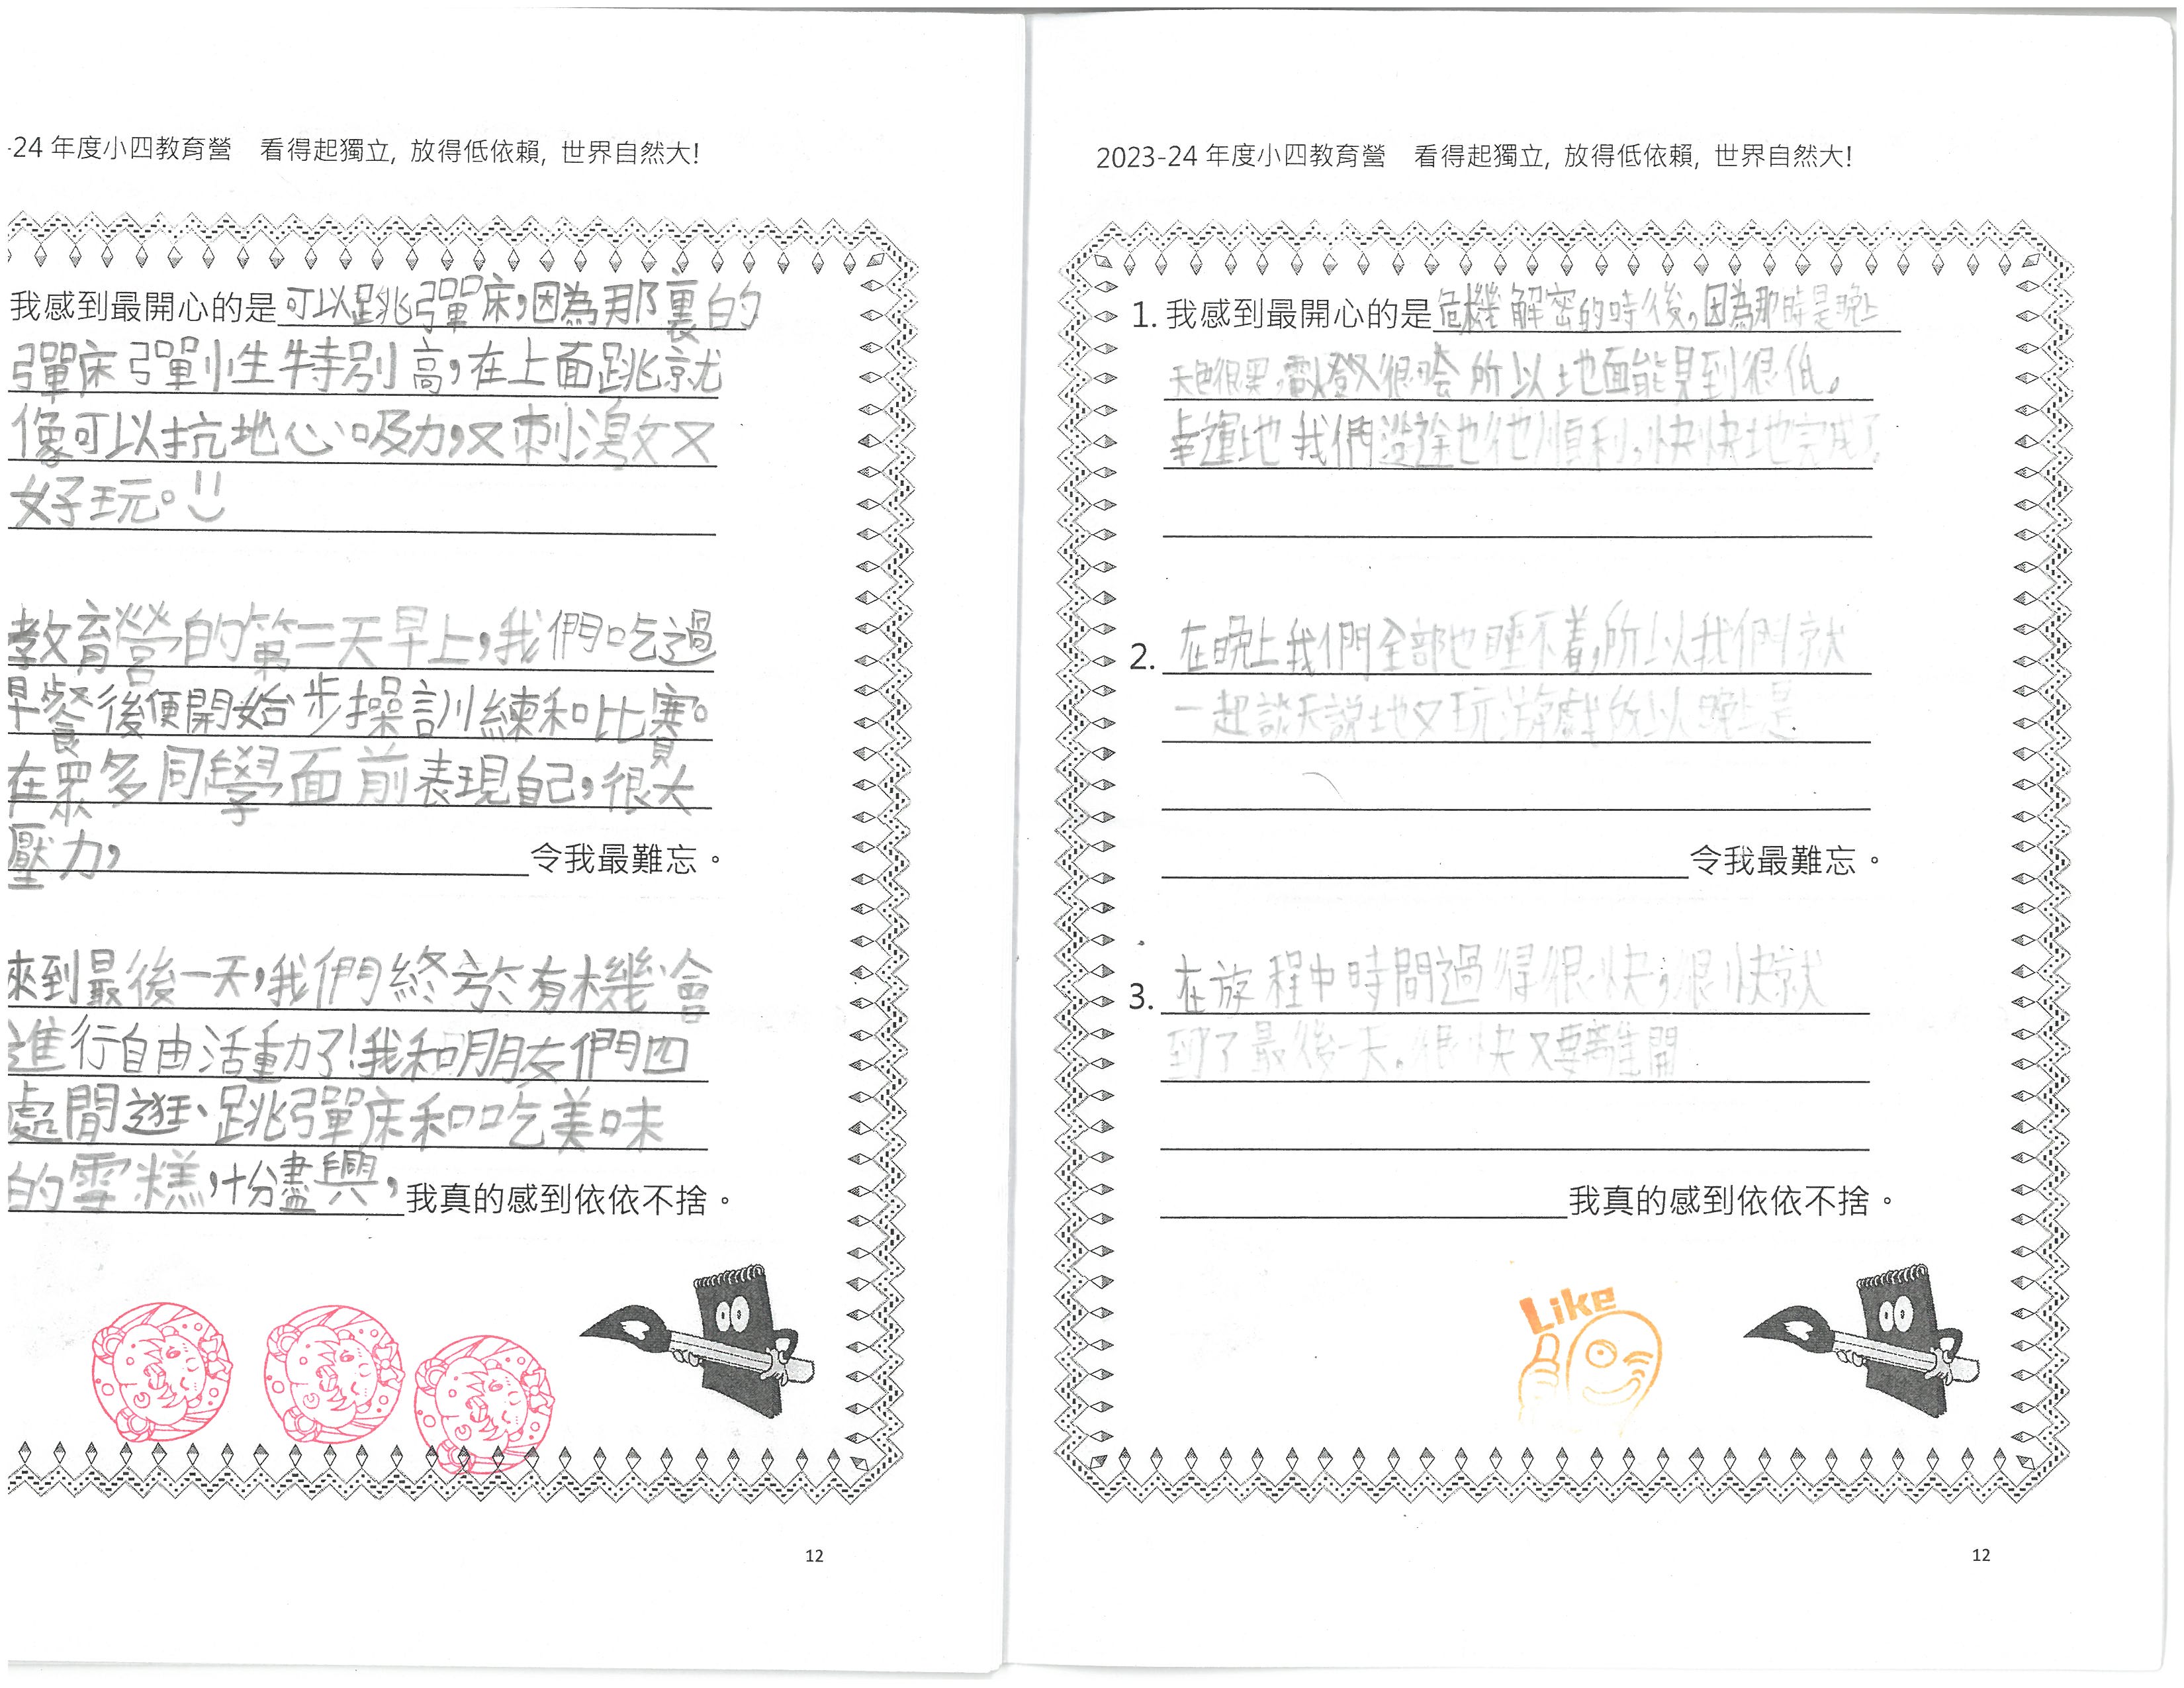 -24 年度小四教育營 看得起獨立, 放得低依賴, 世界自然大!
我感到最開心的是可以跳彈床,因為那裏的
彈床彈性特別高,在上面跳就
像可以抗地心吸力,又刺激又
好玩。
教育營的第二天早上,我們吃過
早餐後便開始步操訓練和比賽。
在眾多同學面前表現自己,很大
壓力,令我最難忘。
來到最後一天,我們終於有機會
進行自由活動了!我和朋友們四
處閒逛、跳彈床和吃美味
的雪糕,十分盡興,我真的感到依依不捨。
12
2023-24 年度小四教育營 看得起獨立, 放得低依賴, 世界自然大!
1. 我感到最開心的是危機解密的時後,因為那時是晚上
天色很黑,又很 所以地面能見到很低。
幸運地我們沿途也很順利,快快地完成了
2. 在晚上我們全部也睡不着,所以我們就
一起談天說地又玩游戲所以晚上是
令我最難忘。
3. 在旅程中時間過得很快,很快就
到了最後一天。很快又要離開
我真的感到依依不捨。
Like
12